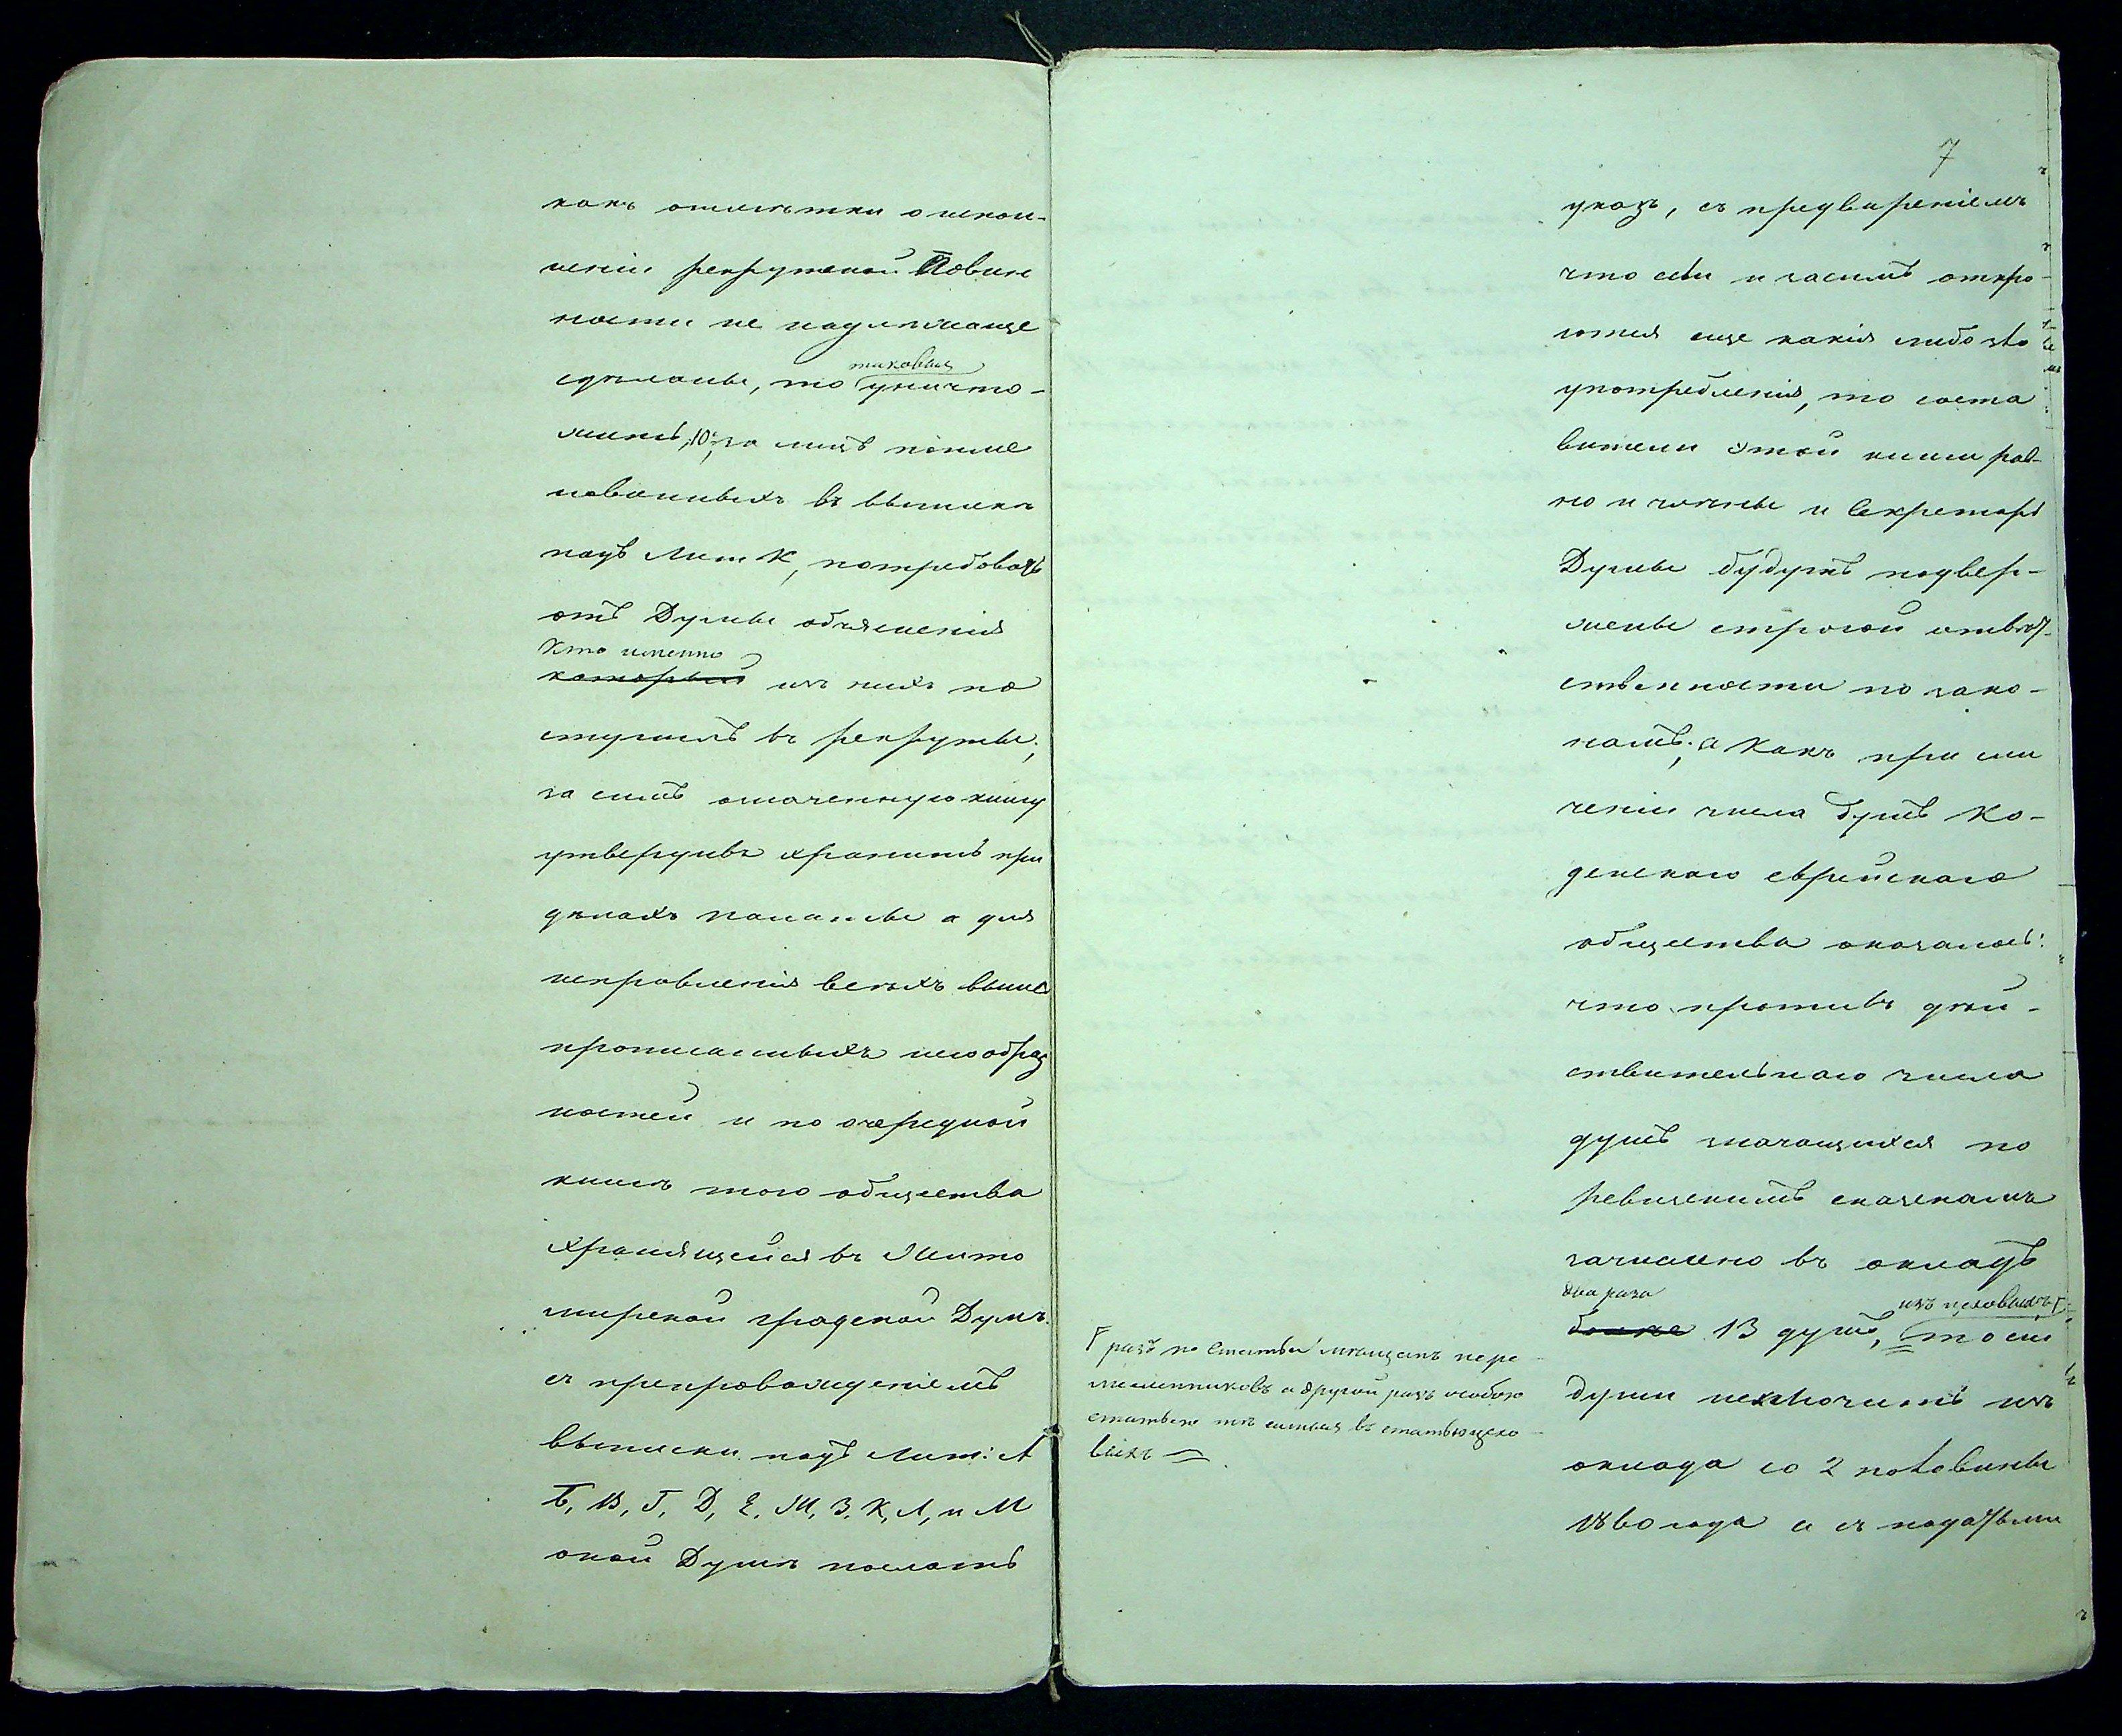 какъ отметки о испол-
неніи рекрутской Повин
ности не надлежаще
сделаны, то таковыя уничто-
жить, 10е, за лицъ поиме
нованныхъ въ выписке
подъ Лит К, потребовать
отъ Думы объясненія
Кто именно
который изъ нихъ по
ступилъ въ рекруты;
за симъ означенную книгу
утвердивъ хранить при
делахъ палаты а для
исправленія всехъ выше
прописанныхъ несообраз
ностей и по очередной
книге того общества
хранящейся въ Жито
мирской градской Думе
съ препровожденіемъ
выписки подъ Лит: А
Б, В, Г, Д, Е, Ж, З, К, Л, и М
оной Думе послать
7
указъ, съ предвареніемъ
что если и засимъ откро
ются еще какія либо зло
употребленія, то соста
вители этой книги рав-
но и члены и Секретарь
Думы будутъ подвер-
жены строгой ответ-
ственности по зако-
намъ; а Какъ при сли
ченіи числа душъ Ко-
денскаго еврейскаго
общества оказалось:
что противъ дей-
ствительнаго числа
душъ значащихся по
ревизскимъ сказкамъ
зачислено въ окладъ
два раза
более 13 душъ, изъ цеховыхъ то сіи
души исключить изъ
оклада со 2 половины
1860 года а съ податьми
разъ по статье мещанъ пере
месленниковъ а другой разъ особою
статьею те самыя въ статью цехо
выхъ